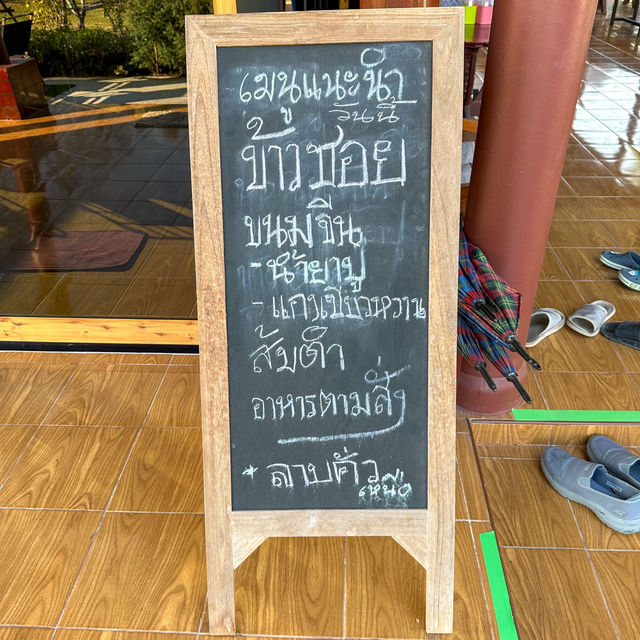 เมนูแนะนำ
วันนี้
ข้าวซอย
ขนมจีน
- น้ำยาปู
- แกงเขียวหวาน
ส้มตำ
อาหารตามสั่ง
* ลาบคั่ว
เหนือ